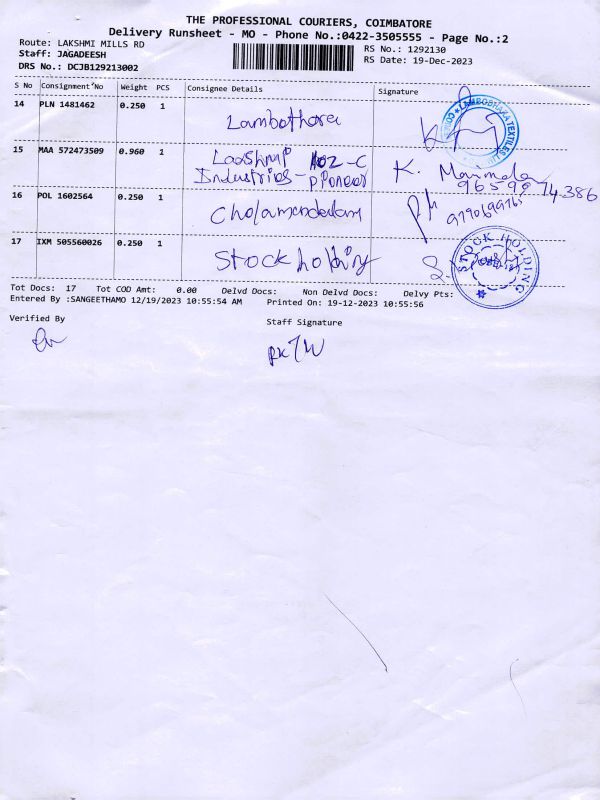 THE PROFESSIONAL COURIERS, COIMBATORE
Delivery Runsheet - MO - Phone No.:0422-3505555 - Page No.:2
Route: LAKSHMI MILLS RD
Staff: JAGADEESH
DRS No.: DCJB129213002
RS No.: 1292130
RS Date: 19-Dec-2023
S No Consignment No Weight PCS Consignee Details Signature
14 PLN 1481462 0.250 1 Lambothara
LAMBODHARA TEXTILES
15 MAA 572473509 0.960 1 102-C
Industries - K. Manimala
16 POL 1602564 0.250 1 Cholamandalam
17 IXM 505560026 0.250 1 Stock holding
STOCK HOLDING
Tot Docs: 17 Tot COD Amt: 0.00 Delvd Docs: Non Delvd Docs: Delvy Pts:
Entered By :SANGEETHAMO 12/19/2023 10:55:54 AM Printed On: 19-12-2023 10:55:56
Verified By Staff Signature